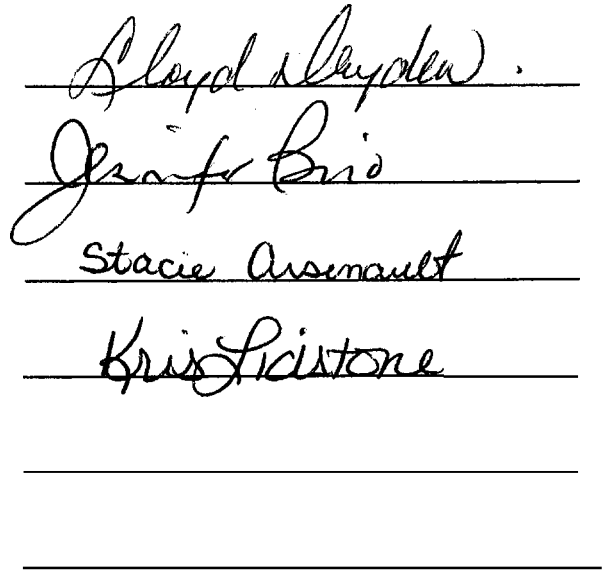 Lloyd Dryden.
Jennifer
Stacie Arsenault
Kris Lidstone